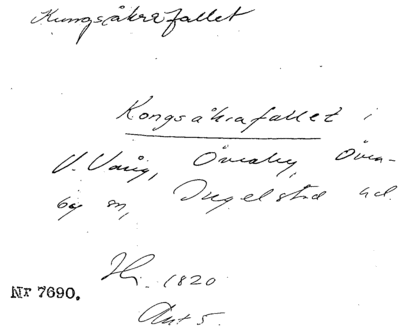 Kungsåkrafallet
Kongsåkrafallet i
V. Vång, Öveaby, Övra-
by sn, Ingelstad hd.
Hr. 1820
Akt 5.
Nr 7690.